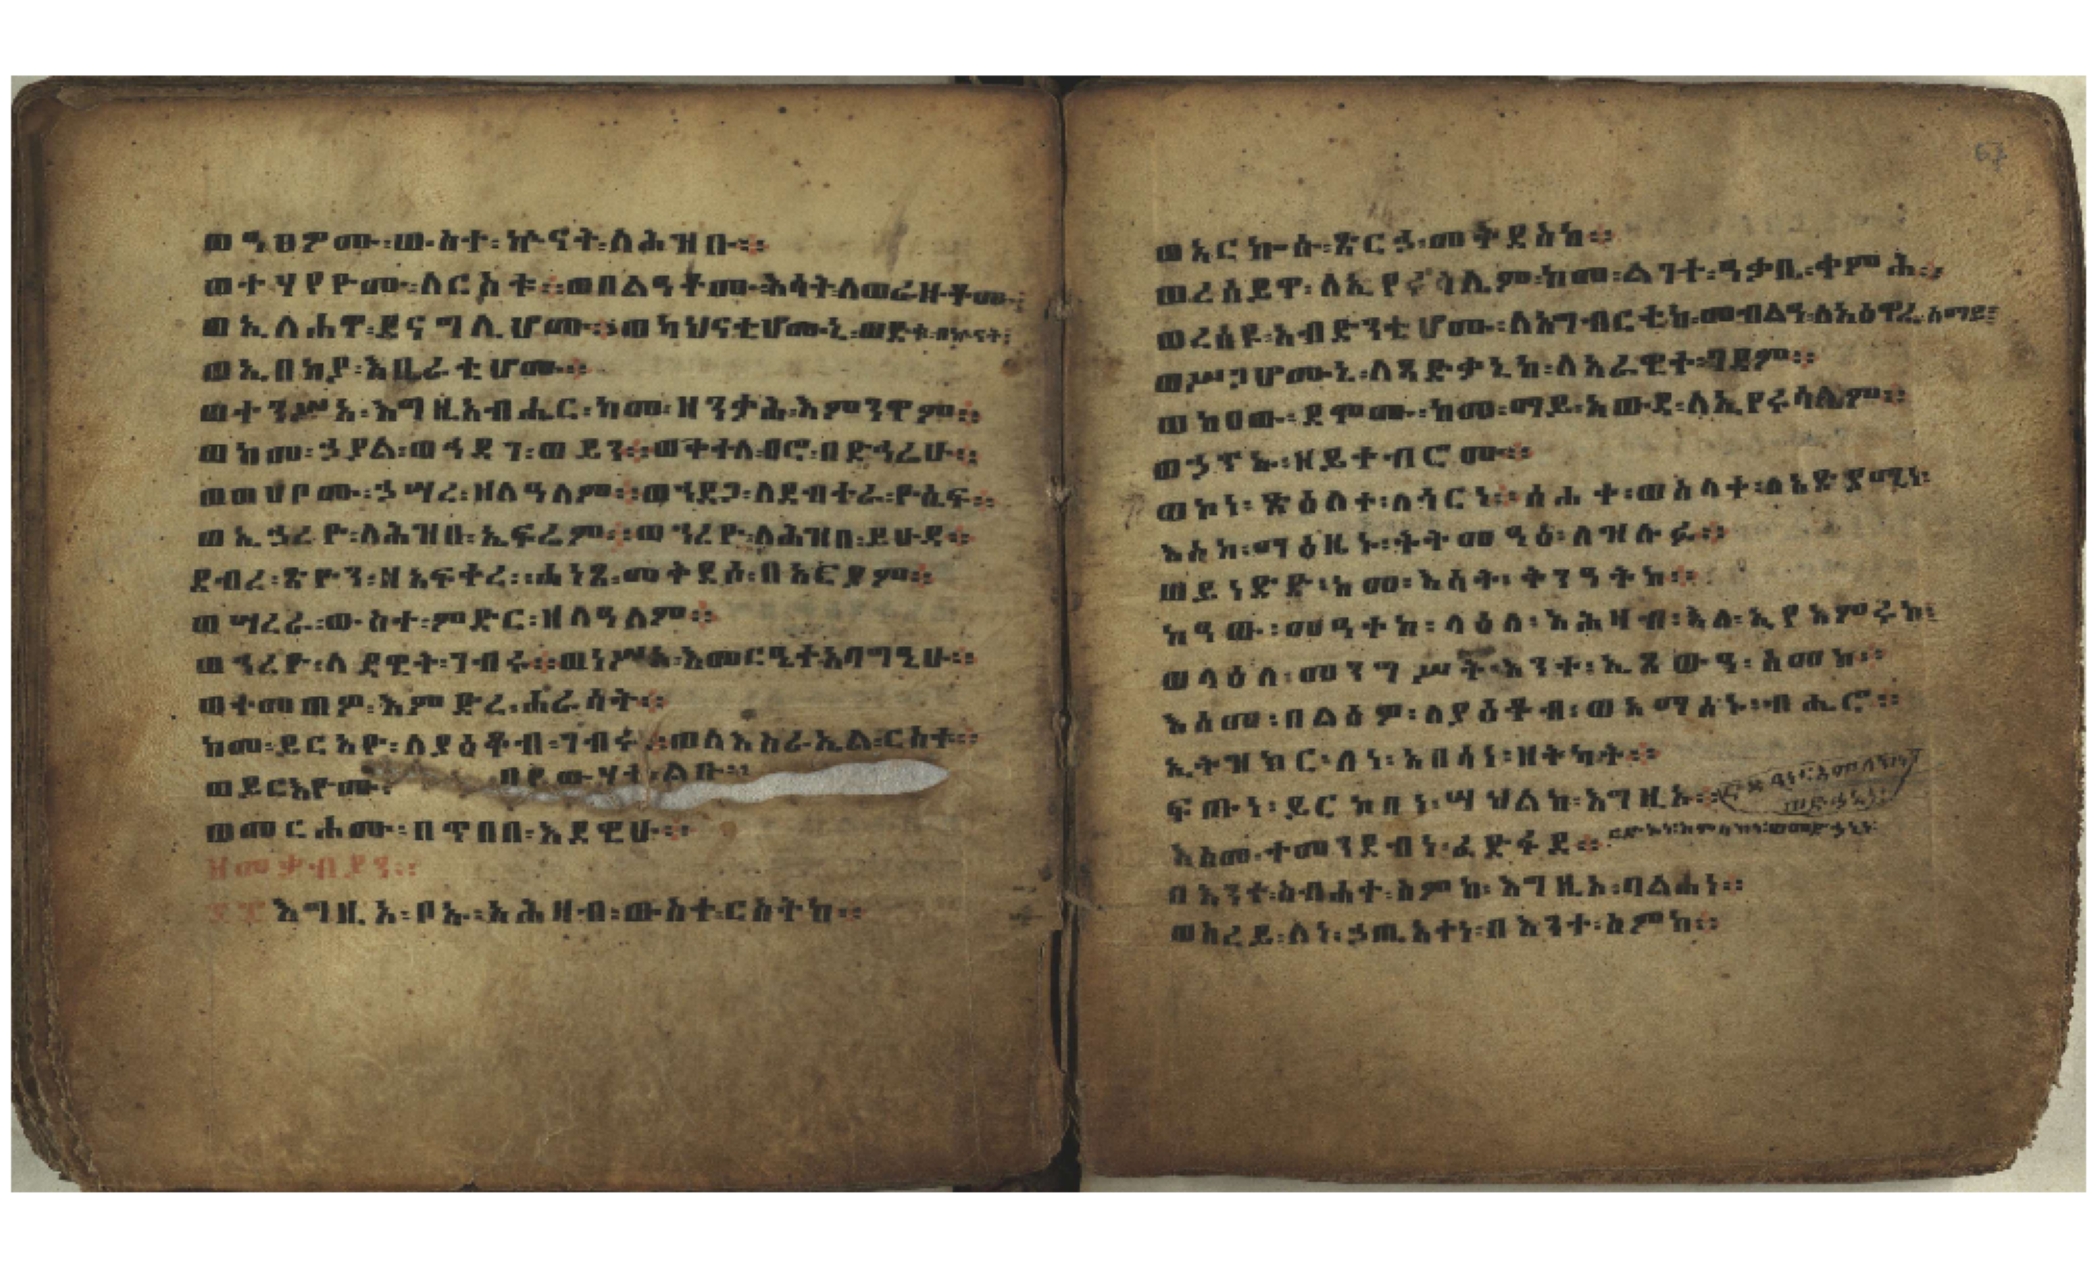 ወዓፀዎሙ፡ውስተ፡ኵናት፡ለሕዝቡ።
ወተሃየዮሙ፡ለርስቱ። ወበልዓቶሙ፡እሳት፡ለወራዙቶሙ፡
ወኢለሐዋ፡ደናግሊሆሙ። ወካህናቲሆሙኒ፡ወድቁ፡በኵናት፡
ወኢበከያ፡እቤራቲሆሙ።
ወተንሥአ፡እግዚአብሔር፡ከመ፡ዘንታሕ፡እምንዋም።
ወከመ፡ኃያል፡ወኅዳገ፡ወይን። ወቀተለ፡ፀሮ፡በድኅሬሁ።
ወወሀቦሙ፡ኃሣረ፡ዘለዓለም። ወኀደጋ፡ለደብተራ፡ዮሴፍ።
ወኢኃረዮ፡ለሕዝበ፡ኤፍሬም። ወኀረዮ፡ለሕዝበ፡ይሁዳ።
ደብረ፡ጽዮን፡ዘአፍቀረ። ሐነጸ፡መቅደሱ፡በአርያም።
ወሣረራ፡ውስተ፡ምድር፡ዘለዓለም።
ወኀረዮ፡ለዳዊት፡ገብሩ። ወነሥአ፡እመርዔተ፡አባግዒሁ።
ወተመጠዎ፡እምድኅረ፡ሐራሳት።
ከመ፡ይርአዮ፡ለያዕቆብ፡ገብሩ። ወለእስራኤል፡ርስቱ።
ወይርእዮሙ፡ በየውሃተ፡ልቡ።
ወመርሐሙ፡በጥበበ፡እደዊሁ።
ዘመቃብያን።
፸፰ እግዚአ፡ቦኡ፡አሕዛብ፡ውስተ፡ርስትከ።
ወአርኰሱ፡ጽርኃ፡መቅደስከ።
ወረሰይዋ፡ለኢየሩሳሌም፡ከመ፡ልገተ፡ዓቃቤ፡ቀምሕ።
ወረሰዩ፡አብድንቲሆሙ፡ለአግብርቲከ፡መብልዓ፡ለአዕዋፈ፡ሰማይ።
ወሥጋሆሙኒ፡ለጻድቃኒከ፡ለአራዊተ፡ገዳም።
ወከዐው፡ደሞሙ፡ከመ፡ማይ፡አውደ፡ለኢየሩሳሌም።
ወኃጥኡ፡ዘይቀብሮሙ።
ወኮነ፡ጽዕለተ፡ለጎርነ። ስሐቀ፡ወስላቀ፡ለአድያሚነ፡
እስከ፡ማዕዜኑ፡ትትመዓዕ፡ለዝሉፉ።
ወይነድድ፡ከመ፡እሳት፡ቅንዓትከ።
ከዓው፡መዓተከ፡ላዕለ፡አሕዛብ፡እለ፡ኢየአምሩከ፡
ወላዕለ፡መንግሥት፡እንተ፡ኢጸውዓ፡ስመከ።
እስመ፡በልዕዎ፡ለያዕቆብ፡ወአማሰኑ፡ብሔሮ።
ኢትዝክር፡ለነ፡አበሳነ፡ዘትካት።
ፍጡነ፡ይርከበነ፡ሣህልከ፡እግዚኦ።
እስመ፡ተመንደብነ፡ፈድፋደ።
በእንተ፡ስብሐተ፡ስምከ፡እግዚኦ፡ባልሐነ።
ወስረይ፡ለነ፡ኃጢአተነ፡በእንተ፡ስምከ።